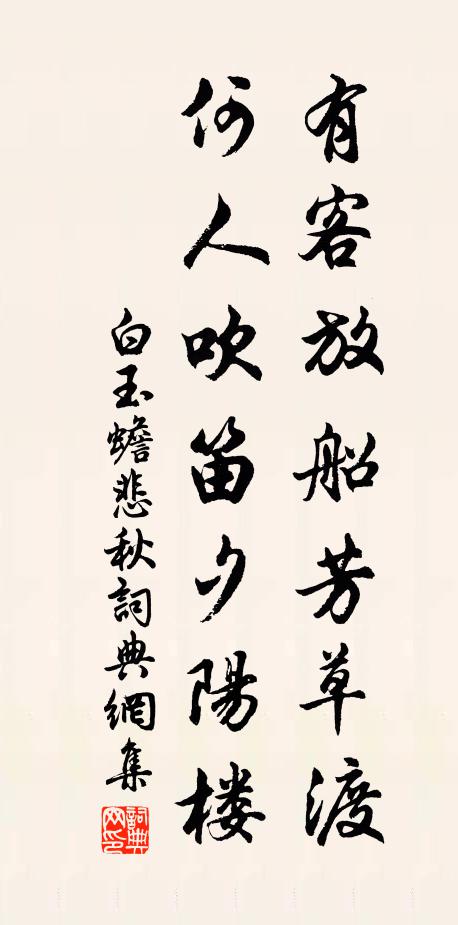 有客放船芳草渡
何人吹笛夕陽楼
白玉蟾悲秋詞典網集
詞典网印